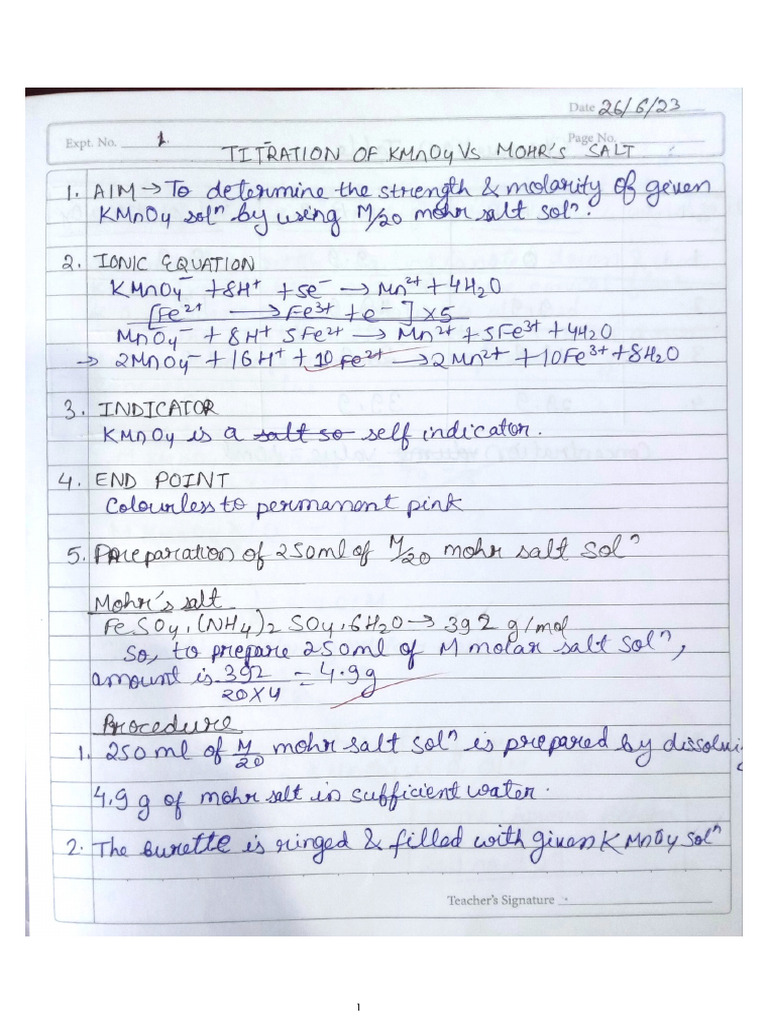 Date 26/6/23
Expt. No. 1.
Page No.
TITRATION OF KMnO4 Vs MOHR'S SALT
1. AIM → To determine the strength & molarity of given
KMnO4 solⁿ by using M/20 mohr salt solⁿ.
2. IONIC EQUATION
KMnO4⁻ + 8H⁺ + 5e⁻ → Mn²⁺ + 4H2O
[Fe²⁺ → Fe³⁺ + e⁻] × 5
MnO4⁻ + 8H⁺ 5Fe²⁺ → Mn²⁺ + 5Fe³⁺ + 4H2O
→ 2MnO4⁻ + 16H⁺ + 10Fe²⁺ → 2Mn²⁺ + 10Fe³⁺ + 8H2O
3. INDICATOR
KMnO4 is a salt so self indicator.
4. END POINT
Colourless to permanent pink
5. Preparation of 250ml of M/20 mohr salt solⁿ
Mohr's salt
FeSO4.(NH4)2 SO4.6H2O → 392 g/mol
So, to prepare 250ml of M molar salt solⁿ,
amount is 392/20×4 = 4.9g
Procedure
1. 250ml of M/20 mohr salt solⁿ is prepared by dissolving
4.9 g of mohr salt in sufficient water.
2. The burette is ringed & filled with given KMnO4 solⁿ
Teacher's Signature
1